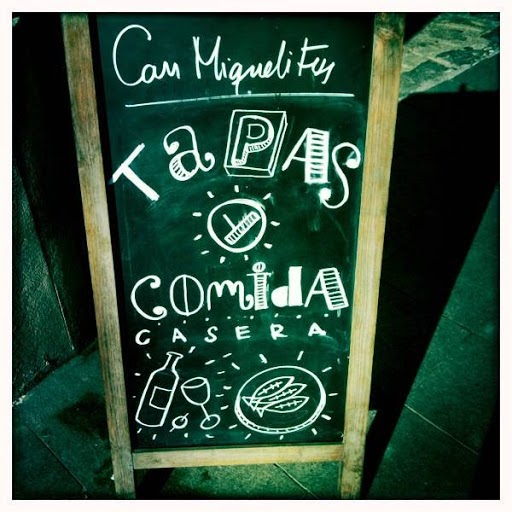 Can Miquelitus
TaPAS
Y
COmidA
CASERA